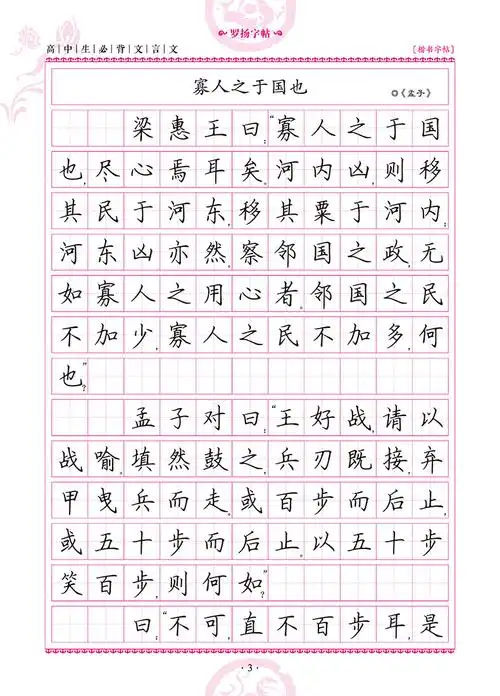 罗扬字帖
高中生必背文言文
[楷书字帖]
寡人之于国也
◎《孟子》
梁惠王曰:“寡人之于国
也,尽心焉耳矣。河内凶,则移
其民于河东,移其粟于河内;
河东凶亦然。察邻国之政,无
如寡人之用心者。邻国之民
不加少,寡人之民不加多,何
也?”
孟子对曰:“王好战,请以
战喻。填然鼓之,兵刃既接,弃
甲曳兵而走。或百步而后止,
或五十步而后止。以五十步
笑百步,则何如?”
曰:“不可,直不百步耳,是
·3·